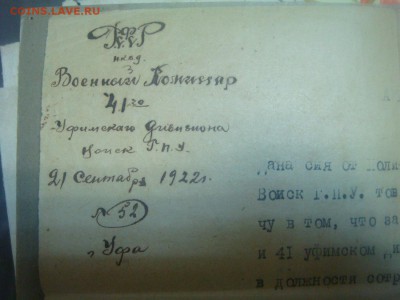 COINS.LAVE.RU
Р.С.Ф.С.Р
нквд.
Военный Комиссар
41го
Уфимскаго Дивизиона
Войск Г.П.У.
21 Сентября 1922г.
№ 52
г. Уфа
дана сия от
Войск Г.П.У. тов
чу в том, что за
и 41 уфимском ди
в должности сотр